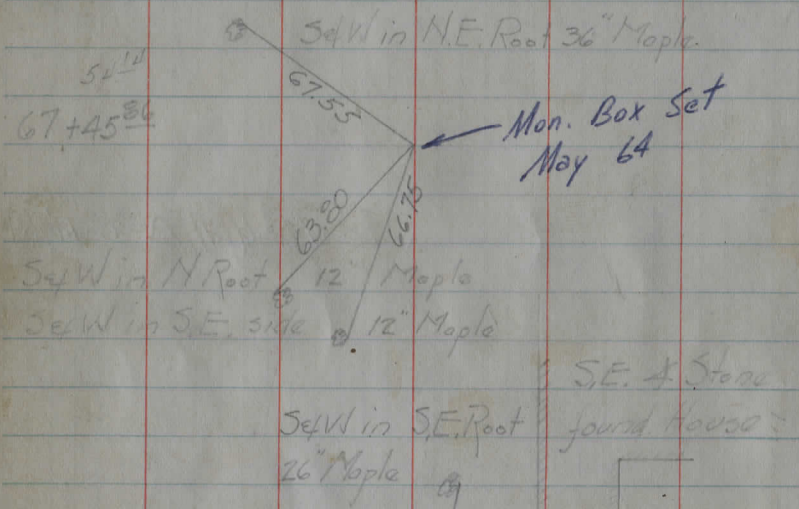 S&W in N.E. Root 36" Maple.
54 14
67.55
67+45 86
Mon. Box Set
May 64
63.80
66.75
S&W in N Root 12" Maple
S&W in S.E. side 12" Maple
S.E. 4 Stone
found. House
S&W in S.E. Root
26" Maple